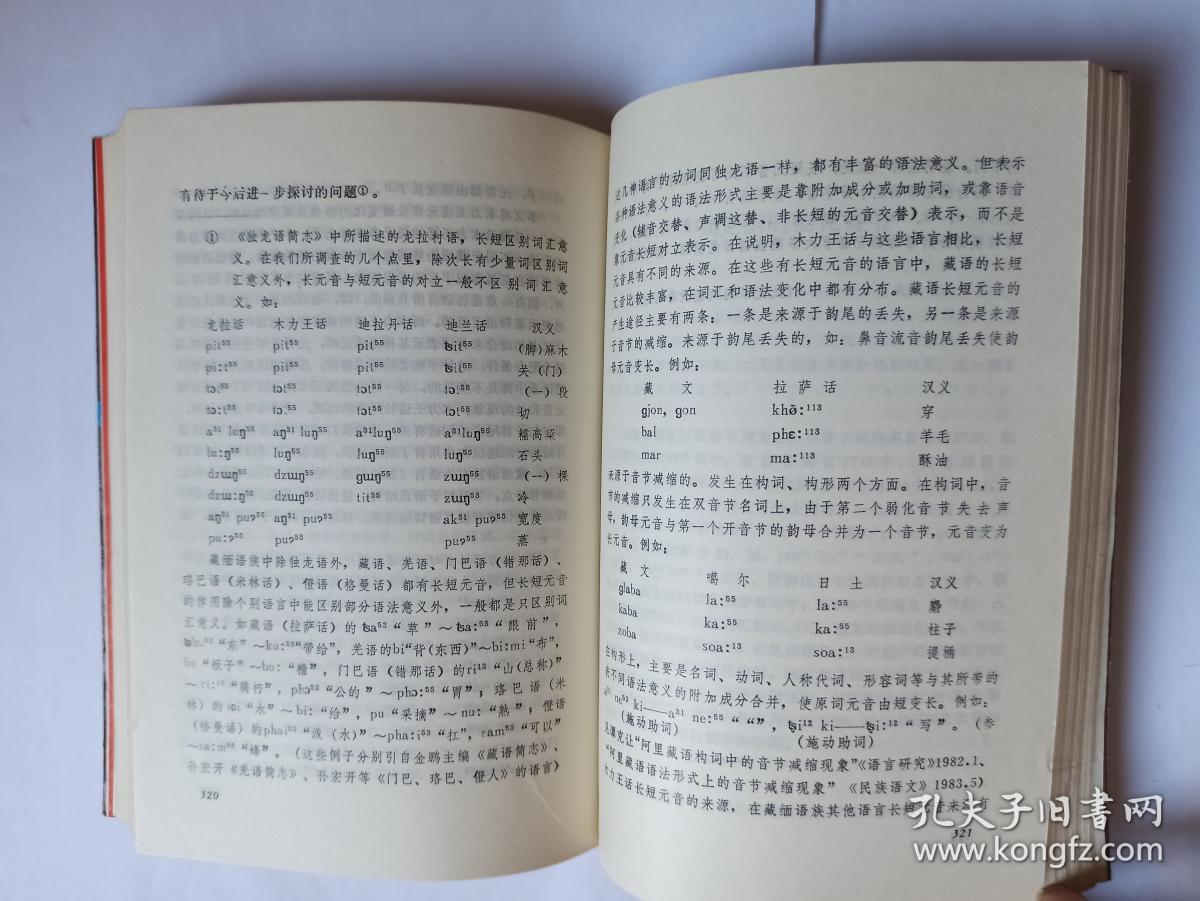 有待于今后进一步探讨的问题①。
① 《独龙语简志》中所描述的龙拉村语，长短区别词汇意
义。在我们所调查的几个点里，除次长有少量词区别词
汇意义外，长元音与短元音的对立一般不区别词汇意
义。如：
龙拉话 木力王话 迪拉丹话 迪兰话 汉义
pit⁵⁵ pit⁵⁵ pit⁵⁵ ʦit⁵⁵ （脚）麻木
pi:t⁵⁵ pit⁵⁵ pit⁵⁵ ʦit⁵⁵ 关（门）
tət⁵⁵ tət⁵⁵ tət⁵⁵ （一）段
tə:t⁵⁵ tət⁵⁵ tət⁵⁵ 切
a³¹ luŋ⁵⁵ aŋ³¹ luŋ⁵⁵ a³¹luŋ⁵⁵ a³¹luŋ⁵⁵ 糯高粱
lu:ŋ⁵⁵ luŋ⁵⁵ luŋ⁵⁵ luŋ⁵⁵ 石头
dzɯŋ⁵⁵ dzɯŋ⁵⁵ gɯŋ⁵⁵ zɯŋ⁵⁵ （一）棵
dzɯ:ŋ⁵⁵ dzɯŋ⁵⁵ tit⁵⁵ zɯŋ⁵³ 冷
aŋ³¹ puʔ⁵⁵ aŋ³¹ puʔ⁵⁵ ak³¹ puʔ⁵⁵ 宽度
pu:ʔ⁵⁵ puʔ⁵⁵ puʔ⁵⁵ 蒸
藏缅语族中除独龙语外，藏语、羌语、门巴语（错那话）、
珞巴语（米林话）、僜语（格曼话）都有长短元音，但长短元音
的作用除个别语言中能区别部分语法意义外，一般都是只区别词
汇意义。如藏语（拉萨话）的ʦa⁵³“草”～ʦa:⁵⁵“跟前”，
“东”～ku:⁵⁵“带给”，羌语的bi“背(东西)”～bi:mi“布”，
bu“板子”～bu:“糖”，门巴语（错那话）的ri¹³“山（总称）”
～ri:¹³“腐朽”，phə⁵³“公的”～phə:⁵⁵“胃”；珞巴语（米
林）的“水”～bi:“给”，pu“采摘”～nu:“熟”；僜语
（格曼话）的phai⁵⁵“泼（水）”～pha:i⁵⁵“扛”，sam⁵⁵“可以”
～sa:m⁵⁵“蜂”。（这些例子分别引自金鹏主编《藏语简志》、
孙宏开《羌语简志》、孙宏开等《门巴、珞巴、僜人》的语言）
320
这几种语言的动词同独龙语一样，都有丰富的语法意义。但表示
各种语法意义的语法形式主要是靠附加成分或加助词，或靠语音
变化（辅音交替、声调这替、非长短的元音交替）表示，而不是
靠元音长短对立表示。在说明，木力王话与这些语言相比，长短
元音具有不同的来源。在这些有长短元音的语言中，藏语的长短
元音比较丰富，在词汇和语法变化中都有分布。藏语长短元音的
产生途径主要有两条：一条是来源于韵尾的丢失，另一条是来源
于音节的减缩。来源于韵尾丢失的，如：鼻音流音韵尾丢失使韵
母元音变长。例如：
藏 文 拉 萨 话 汉义
gjon, gon khø̃:¹¹³ 穿
bal phɛ:¹¹³ 羊毛
mar ma:¹¹³ 酥油
来源于音节减缩的。发生在构词、构形两个方面。在构词中，音
节的减缩只发生在双音节名词上，由于第二个弱化音节失去声
母，韵母元音与第一个开音节的韵母合并为一个音节，元音变为
长元音。例如：
藏 文 噶 尔 日 土 汉义
glaba la:⁵⁵ la:⁵⁵ 麝
kaba ka:⁵⁵ ka:⁵⁵ 柱子
zoba soa:¹³ soa:¹³ 提桶
在构形上，主要是名词、动词、人称代词、形容词等与其所带的
表不同语法意义的附加成分合并，使原词元音由短变长。例如：
a³¹ ne⁵¹ ki——a³¹ ne:⁵⁵“ “”，ʂi¹² ki——ʂi:¹²“写”。（参
（施动助词） （施动助词）
见谭克让“阿里藏语构词中的音节减缩现象”《语言研究》1982.1、
“阿里藏语语法形式上的音节减缩现象”《民族语文》1983.5）
木力王话长短元音的来源，在藏缅语族其他语言长短元音来源有
321
孔夫子旧书网
www.kongfz.com